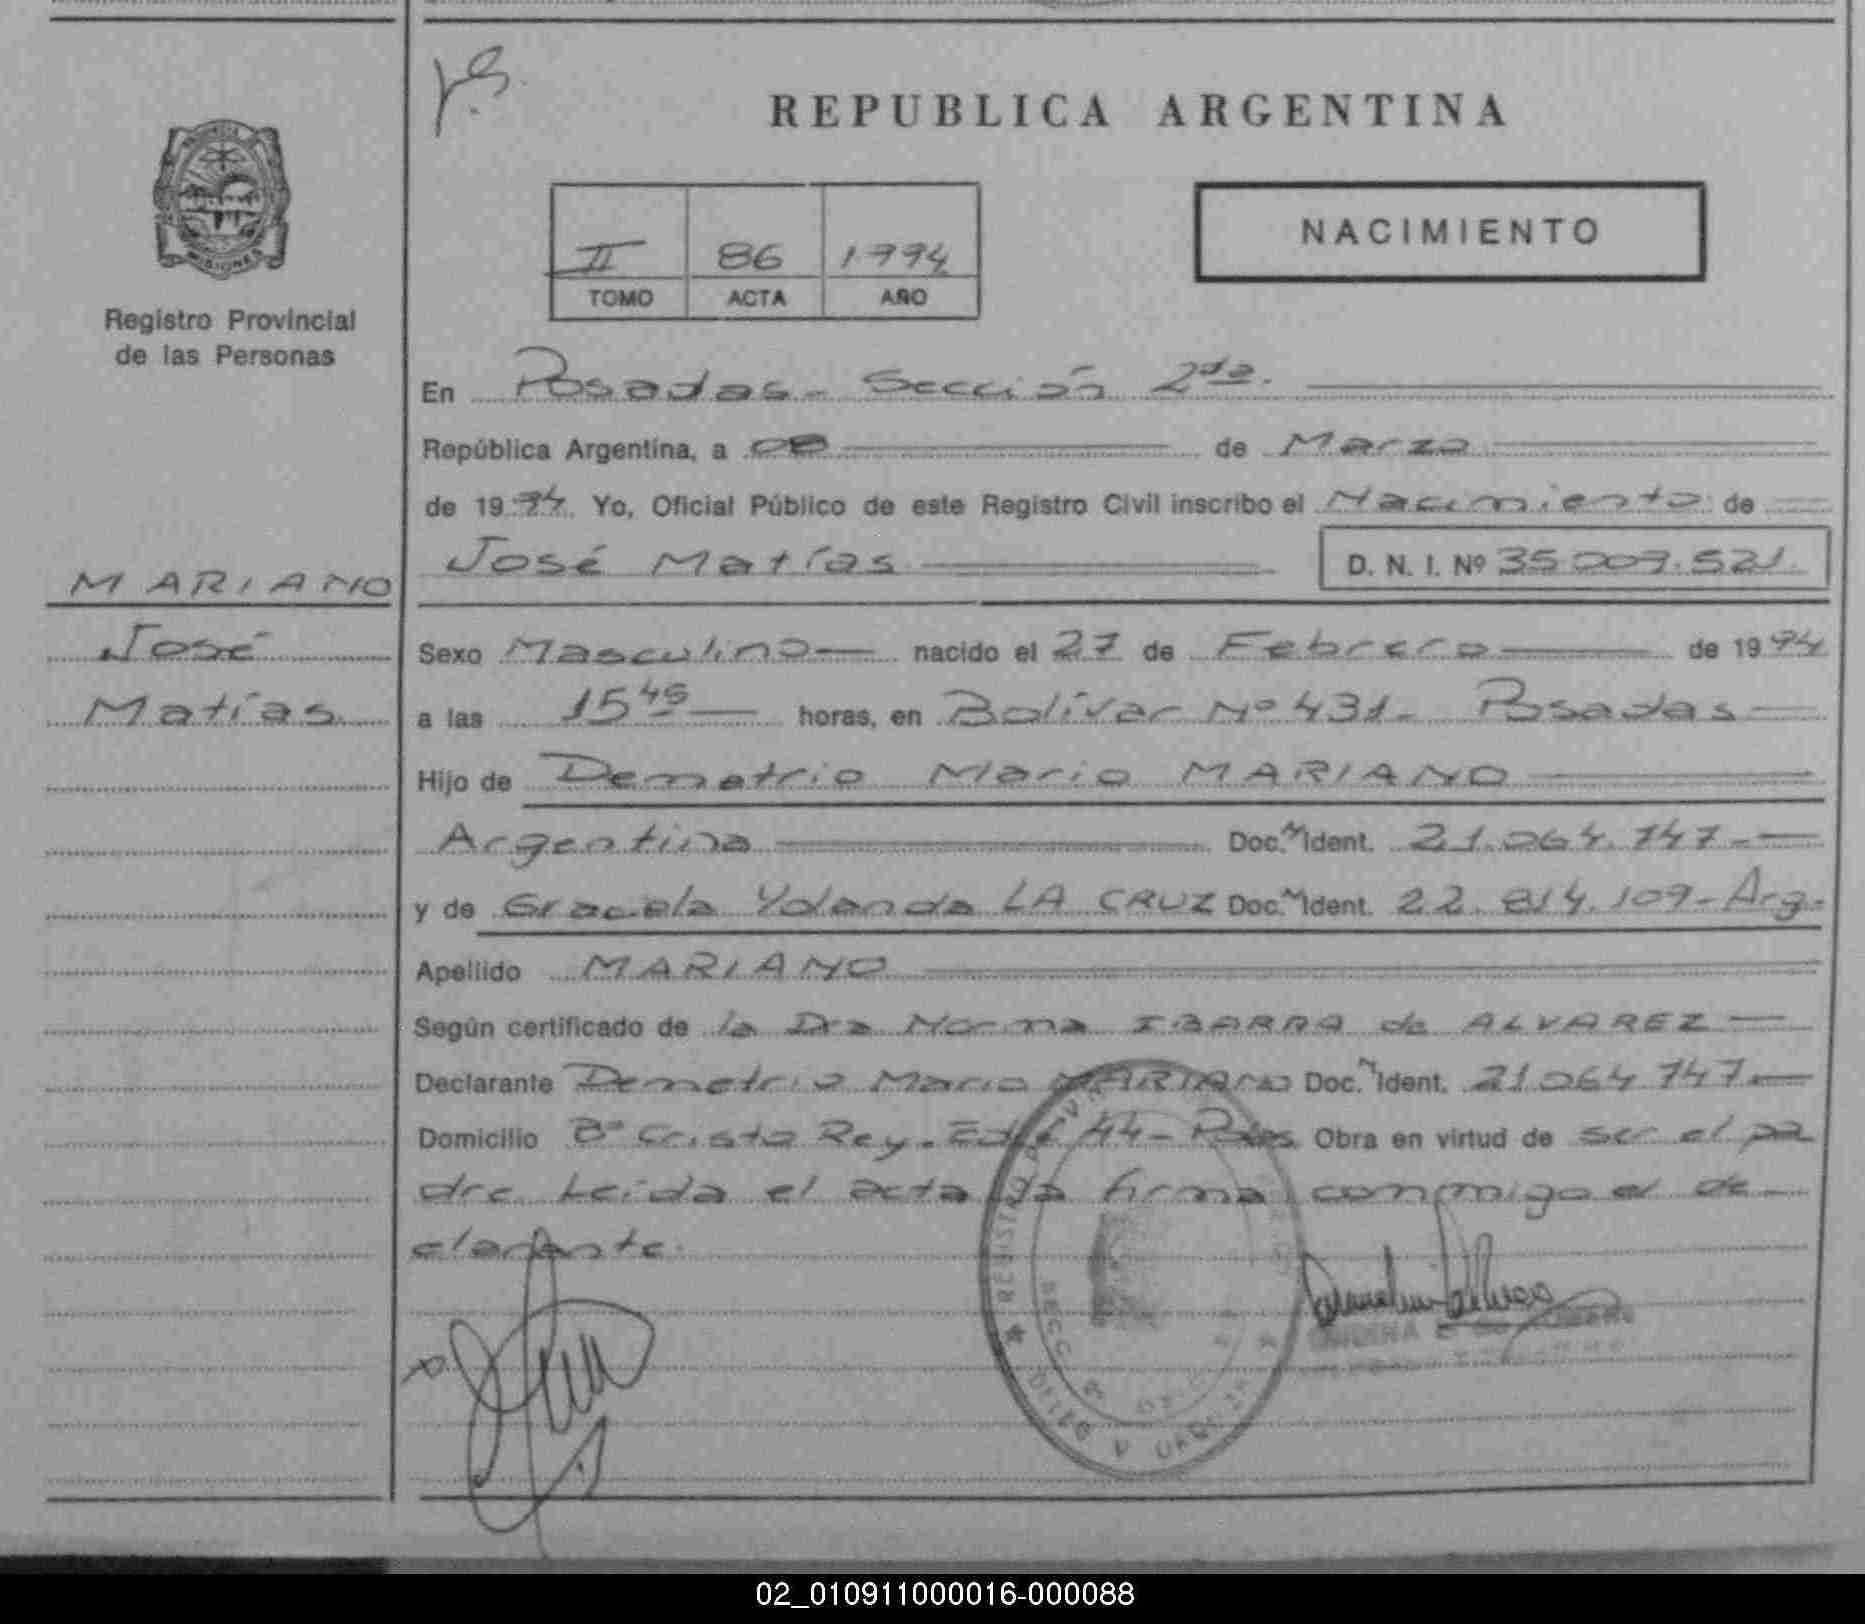 REPUBLICA ARGENTINA
MISIONES
Registro Provincial
de las Personas
II 86 1994
TOMO ACTA AÑO
NACIMIENTO
En Posadas - Sección 2da.
República Argentina, a 08 de Marzo
de 1994. Yo, Oficial Público de este Registro Civil inscribo el Nacimiento de
José Matías D. N. I. Nº 35.009.521.
MARIANO
José
Matías
Sexo Masculino nacido el 27 de Febrero de 1994
a las 15 45 horas, en Bolívar Nº 431 - Posadas
Hijo de Demetrio Mario MARIANO
Argentina Doc. Ident. 21.064.747 -
y de Graciela Yolanda LA CRUZ Doc. Ident. 22.814.109 - Arg.
Apellido MARIANO
Según certificado de la Dra Norma IBARRA de ALVAREZ
Declarante Demetrio Mario MARIANO Doc. Ident. 21.064.747 -
Domicilio Bº Cristo Rey - Edif 44 - Pdas. Obra en virtud de ser el pa
dre. Leida el acta la firma conmigo el de
clarante.
02_010911000016-000088